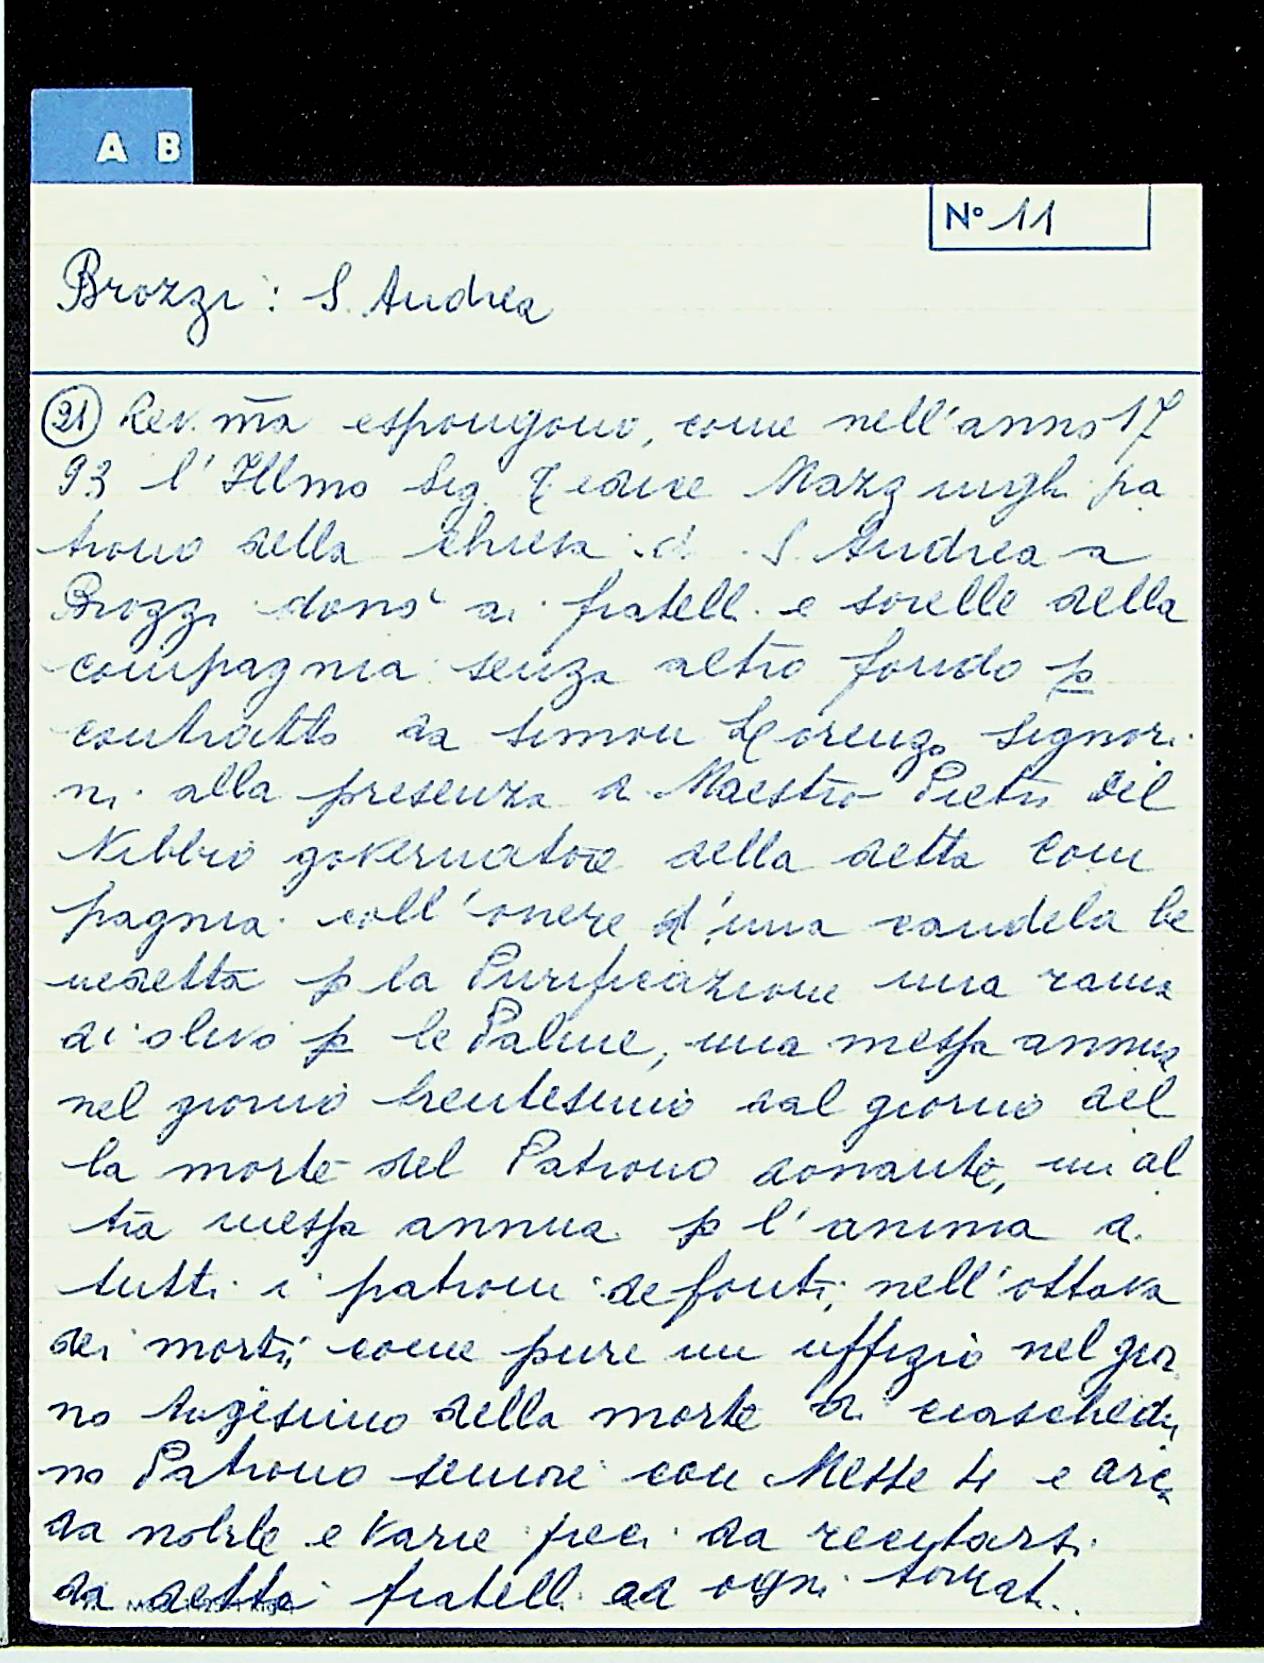 A B
N° 11
Brozzi: S. Andrea
(21) Rev. m̄a espongono, come nell'anno 17
93 l'Illmo Sig. Tedice Mazzinghi pa
trono della chiesa di S. Andrea a
Brozzi donò ai fratelli e sorelle della
compagnia senza altro fondo p
contratto da Simon Lorenzo Signori
ni alla presenza di Maestro Pietro del
Nibbio governatore della detta Com
pagnia coll'onere d'una candela be
nedetta p la Purificazione una rama
di olivo p le Palme, una messa annua
nel giorno trentesimo dal giorno del
la morte del Patrono donante, un al
tra messa annua p l'anima di
tutti i patroni defonti, nell'ottava
dei morti, come pure un uffizio nel gior
no trigesimo della morte di ciaschedu
no Patrono seniore con Messe 4 e
da nobile e varie preci da recitarsi
da detti fratelli ad ogni tornat..